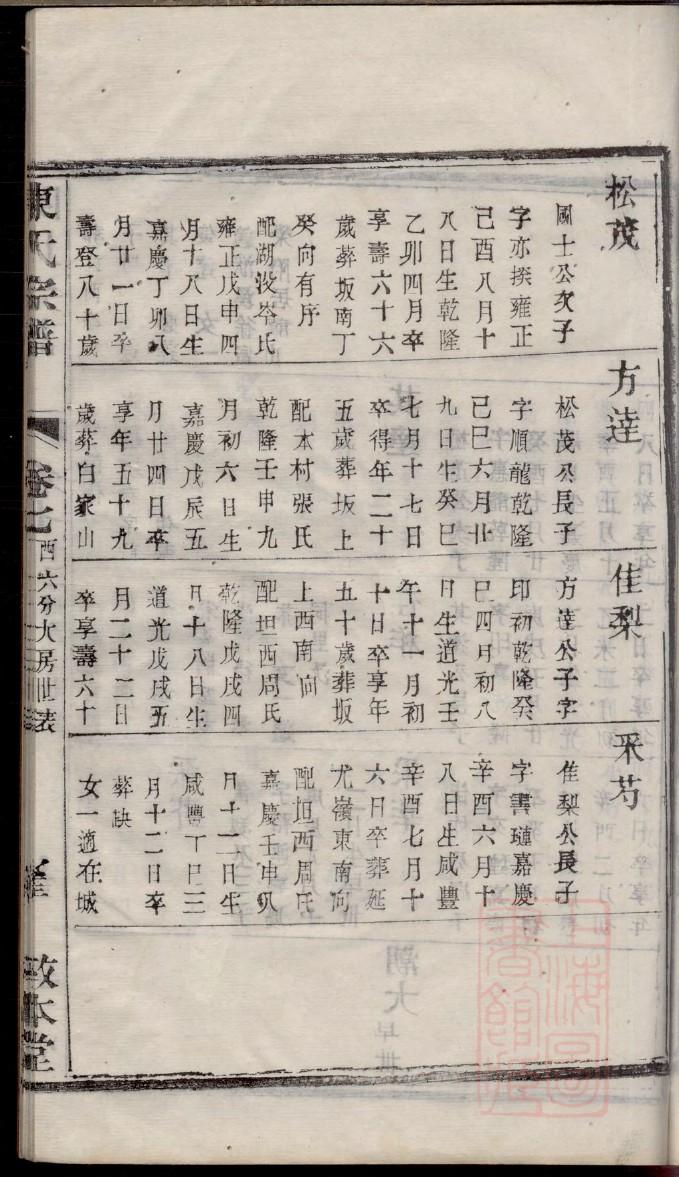 松茂
國士公次子
字亦揆雍正
己酉八月十
八日生乾隆
乙卯四月卒
享壽六十六
歲葬坂南丁
癸向有序
配湖没岑氏
雍正戊申四
月十八日生
嘉慶丁卯八
月廿一日卒
壽登八十歲
方逹
松茂公長子
字順龍乾隆
己巳六月廿
九日生癸巳
七月十七日
卒得年二十
五歲葬坂上
配本村張氏
乾隆壬申九
月初六日生
嘉慶戊辰五
月廿四日卒
享年五十九
歲葬白家山
佳梨
方逹公子字
印初乾隆癸
巳四月初八
日生道光壬
午十一月初
十日卒享年
五十歲葬坂
上西南向
配坦西周氏
乾隆戊戌四
月十八日生
道光戊戌五
月二十二日
卒享壽六十
采芍
佳梨公長子
字書璉嘉慶
辛酉六月十
八日生咸豐
辛酉七月十
六日卒葬延
尤嶺東南向
配坦西周氏
嘉慶壬申八
月十二日生
咸豐丁巳三
月十二日卒
葬缺
女一適在城
氏宗譜
卷七
西六分大房世表
敦本堂